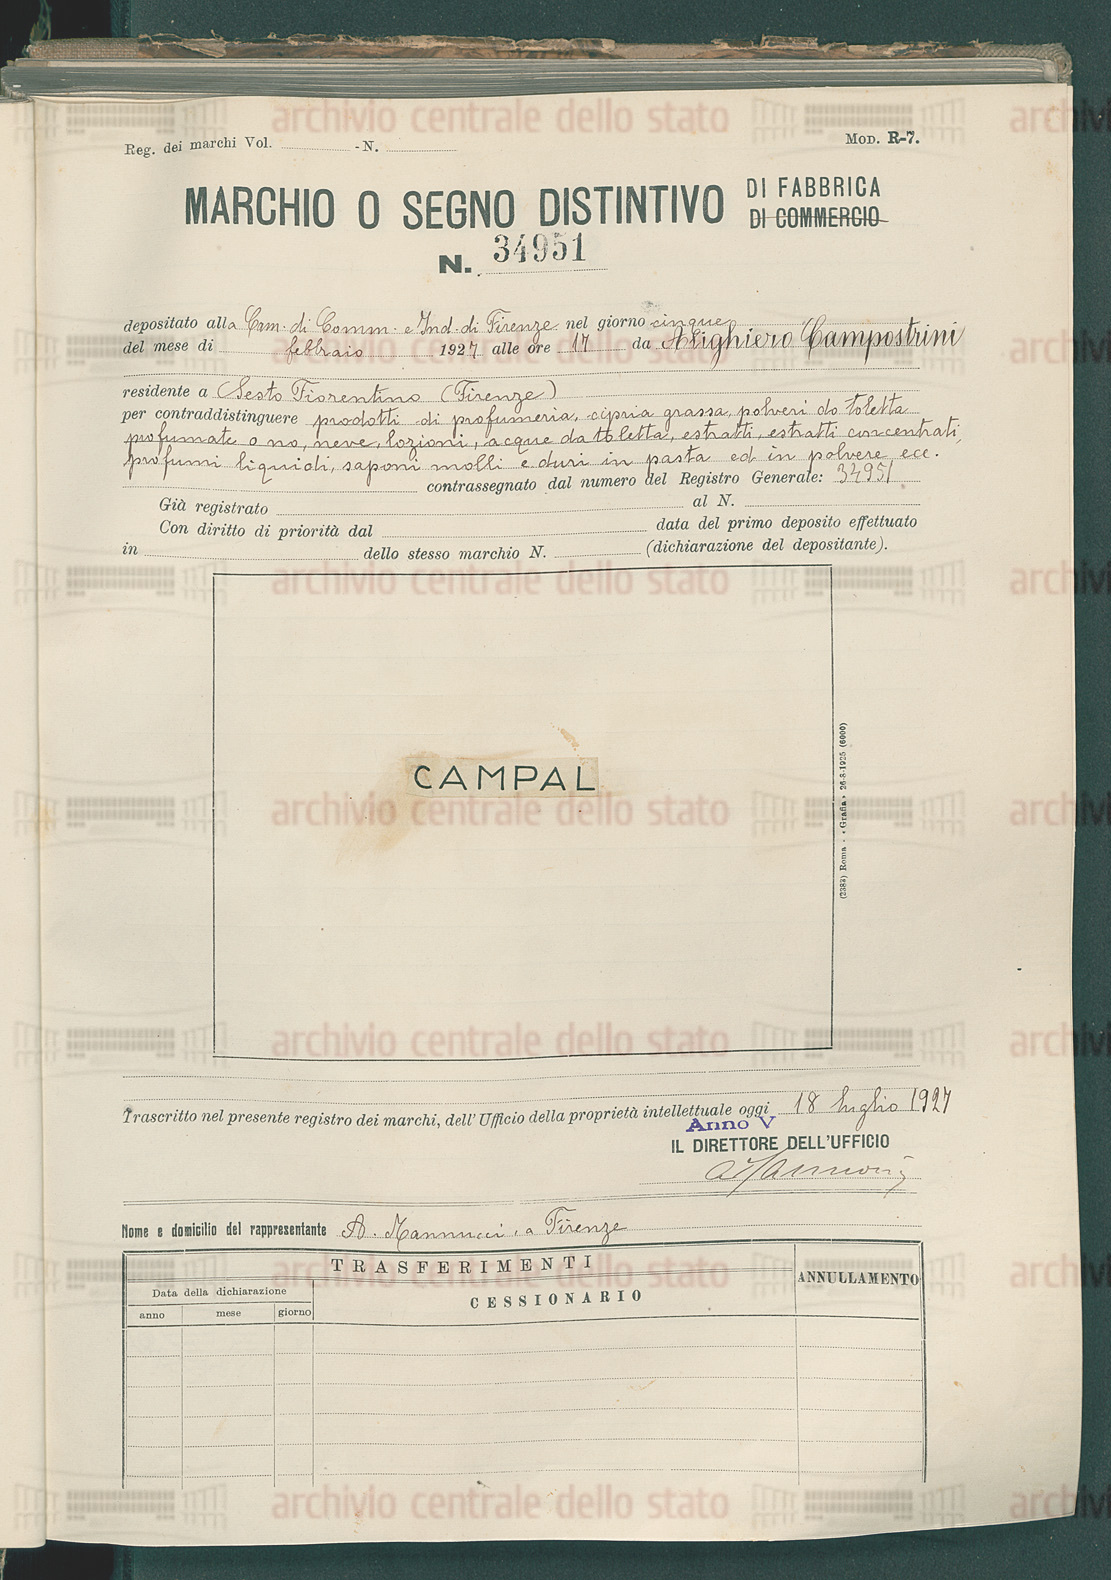 Reg. dei marchi Vol. - N.
Mod. R-7.
MARCHIO O SEGNO DISTINTIVO DI FABBRICA
DI COMMERCIO
N. 34951
depositato alla Cam. di Comm. e Ind. di Firenze nel giorno cinque
del mese di febbraio 1927 alle ore 17 da Alighiero Campostrini
residente a Sesto Fiorentino (Firenze)
per contraddistinguere prodotti di profumeria, cipria grassa, polveri da toletta
profumate o no, neve, lozioni, acque da toletta, estratti, estratti concentrati,
profumi liquidi, saponi molli e duri in pasta ed in polvere ecc.
contrassegnato dal numero del Registro Generale: 34951
Già registrato al N.
Con diritto di priorità dal data del primo deposito effettuato
in dello stesso marchio N. (dichiarazione del depositante).
CAMPAL
(2383) Roma - «Grafia» 26-8-1925 (6000)
Trascritto nel presente registro dei marchi, dell'Ufficio della proprietà intellettuale oggi 18 luglio 1927
Anno V
IL DIRETTORE DELL'UFFICIO
Nome e domicilio del rappresentante A. Mannucci, a Firenze
TRASFERIMENTI
ANNULLAMENTO
Data della dichiarazione
CESSIONARIO
anno mese giorno
archivio centrale dello stato
archivio centrale dello stato
archivio centrale dello stato
archivio centrale dello stato
archivio centrale dello stato
archivio centrale dello stato
archivio centrale dello stato